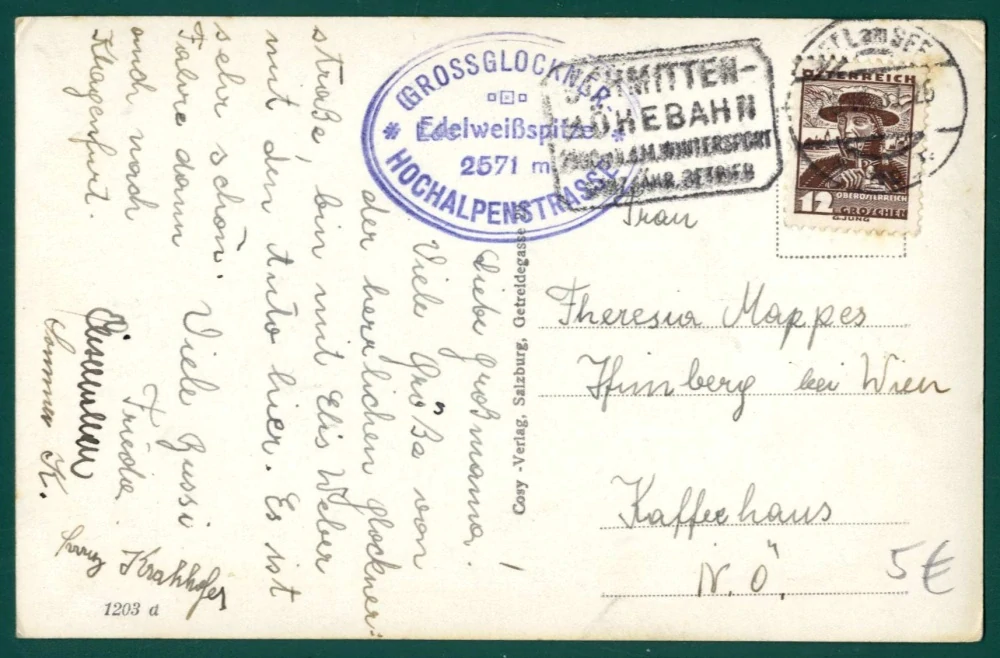 Liebe Großmama!
Viele Grüße von
der herrlichen Glockner-
straße bin mit Elis Weber
mit dem Auto hier. Es ist
sehr schön. Viele Bussi
Fahre dann Frieda
auch nach
Klagenfurt.
Sommer K.
Krahhofer
1203 d
GROSSGLOCKNER-
Edelweißspitze
2571 m
HOCHALPENSTRASSE
SCHMITTEN-
HÖHEBAHN
GANZJÄHR. BETRIEB
ZELL am SEE
ÖSTERREICH
OBERÖSTERREICH
12 GROSCHEN
G.JUNG
Cosy-Verlag, Salzburg, Getreidegasse 22
Frau
Theresia Mappes
Himberg bei Wien
Kaffeehaus
N.Ö.
5€